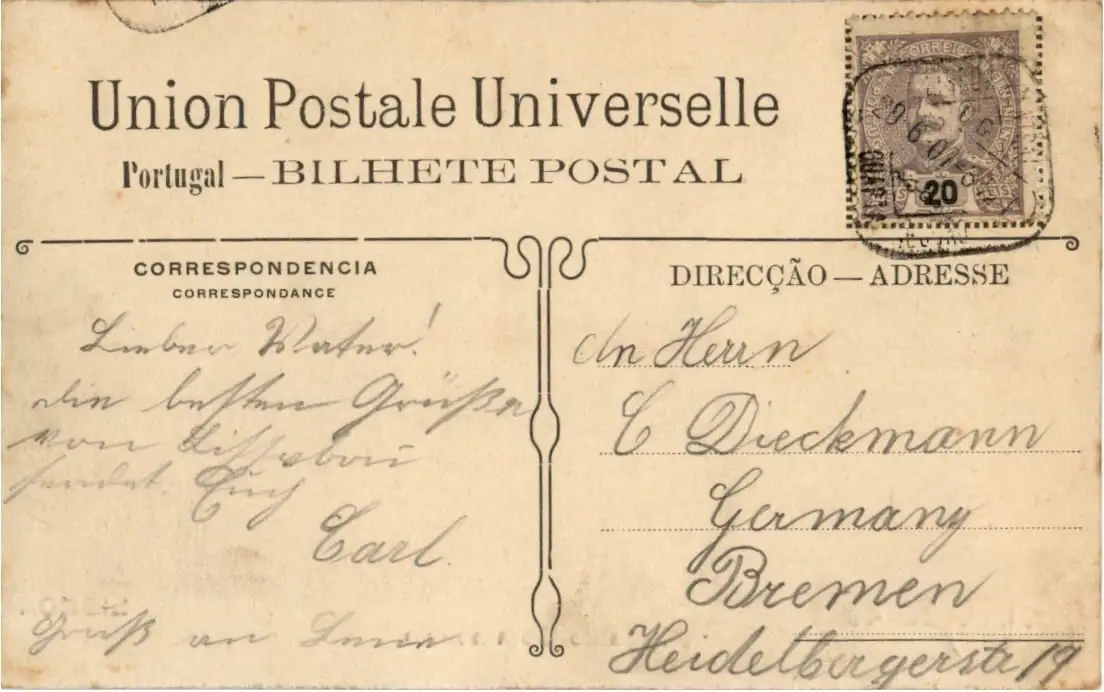 Union Postale Universelle
Portugal — BILHETE POSTAL
CORREIOS
20
CORRESPONDENCIA
CORRESPONDANCE
DIRECÇÃO — ADRESSE
Lieber Vater!
die besten Grüße
von Lissabon
sendet Euch
Carl.
Gruß an
An Herrn
C Dieckmann
Germany
Bremen
Heidelbergerstr 19